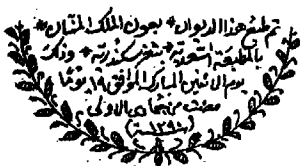 تم طبع هذا الديوان * بعون الملك المنان *
بالمطبعة السعدية * بثغر سكندرية * وذلك
يوم الاثنين المبارك الموافق ١٨ يوما
مضت من جمادى الاولى
سنة ١٢٩٨